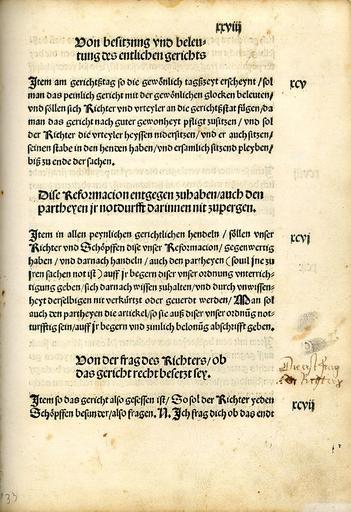 xxviij
Von besitzung vnd beleu-
tung des entlichen gerichts
Item am gerichßtag so die gewönlich tagßzeyt erscheynt / sol
man das peinlich gericht mit der gewönlichen glocken beleuten/
vnd söllen sich Richter vnd vrteyler an die gerichtßstat fügen/da
man das gericht nach guter gewonheyt pfligt zusitzen / vnd sol
der Richter die vrteyler heyssen nidersitzen/ vnd er auch sitzen/
seinen stabe in den henden haben/ vnd ersamlich sitzend pleyben/
biß zu ende der sachen.
xcv
Dise Reformacion entgegen zuhaben/auch den
partheyen jr notdurfft darinnen nit zupergen.
Item in allen peynlichen gerichtlichen hendeln / söllen vnser
Richter vnd Schöpffen dise vnser Reformacion/ gegenwertig
haben / vnd darnach handeln / auch den partheyen (souil jne zu
jren sachen not ist) auff jr begern diser vnser ordnung vnterrich-
tigung geben/sich darnach wissen zuhalten/vnd durch vnwissen-
heyt derselbigen nit verkürtzt oder geuerdt werden/ Man sol
auch den partheyen die artickel/so sie auß diser vnser ordnūg not-
turfftig sein/auff jr begern vnd zimlich belonūg abschrifft geben.
xcvj
Von der frag des Richters/ ob
das gericht recht besetzt sey.
Die erst frag
Item so das gericht also gesessen ist/ So sol der Richter yeden
Schöpffen besunder/also fragen. N. Ich frag dich ob das endt
xcvij
33